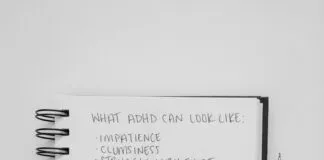 WHAT ADHD CAN LOOK LIKE:
· IMPATIENCE
· CLUMSINESS